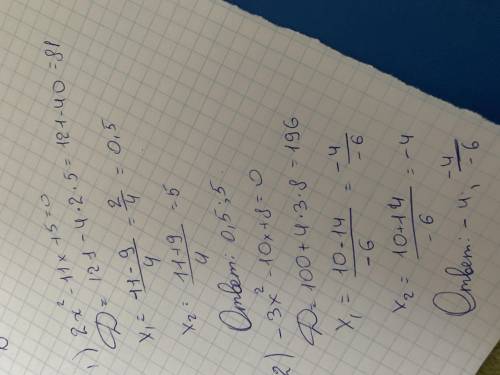 1) 2x² - 11x + 5 = 0
D = 121 - 4·2·5 = 121 - 40 = 81
x₁ = (11 - 9)/4 = 2/4 = 0,5
x₂ = (11 + 9)/4 = 5
Ответ: 0,5; 5.
2) -3x² - 10x + 8 = 0
D = 100 + 4·3·8 = 196
x₁ = (10 - 14)/-6 = -4/-6
x₂ = (10 + 14)/-6 = -4
Ответ: -4, -4/-6